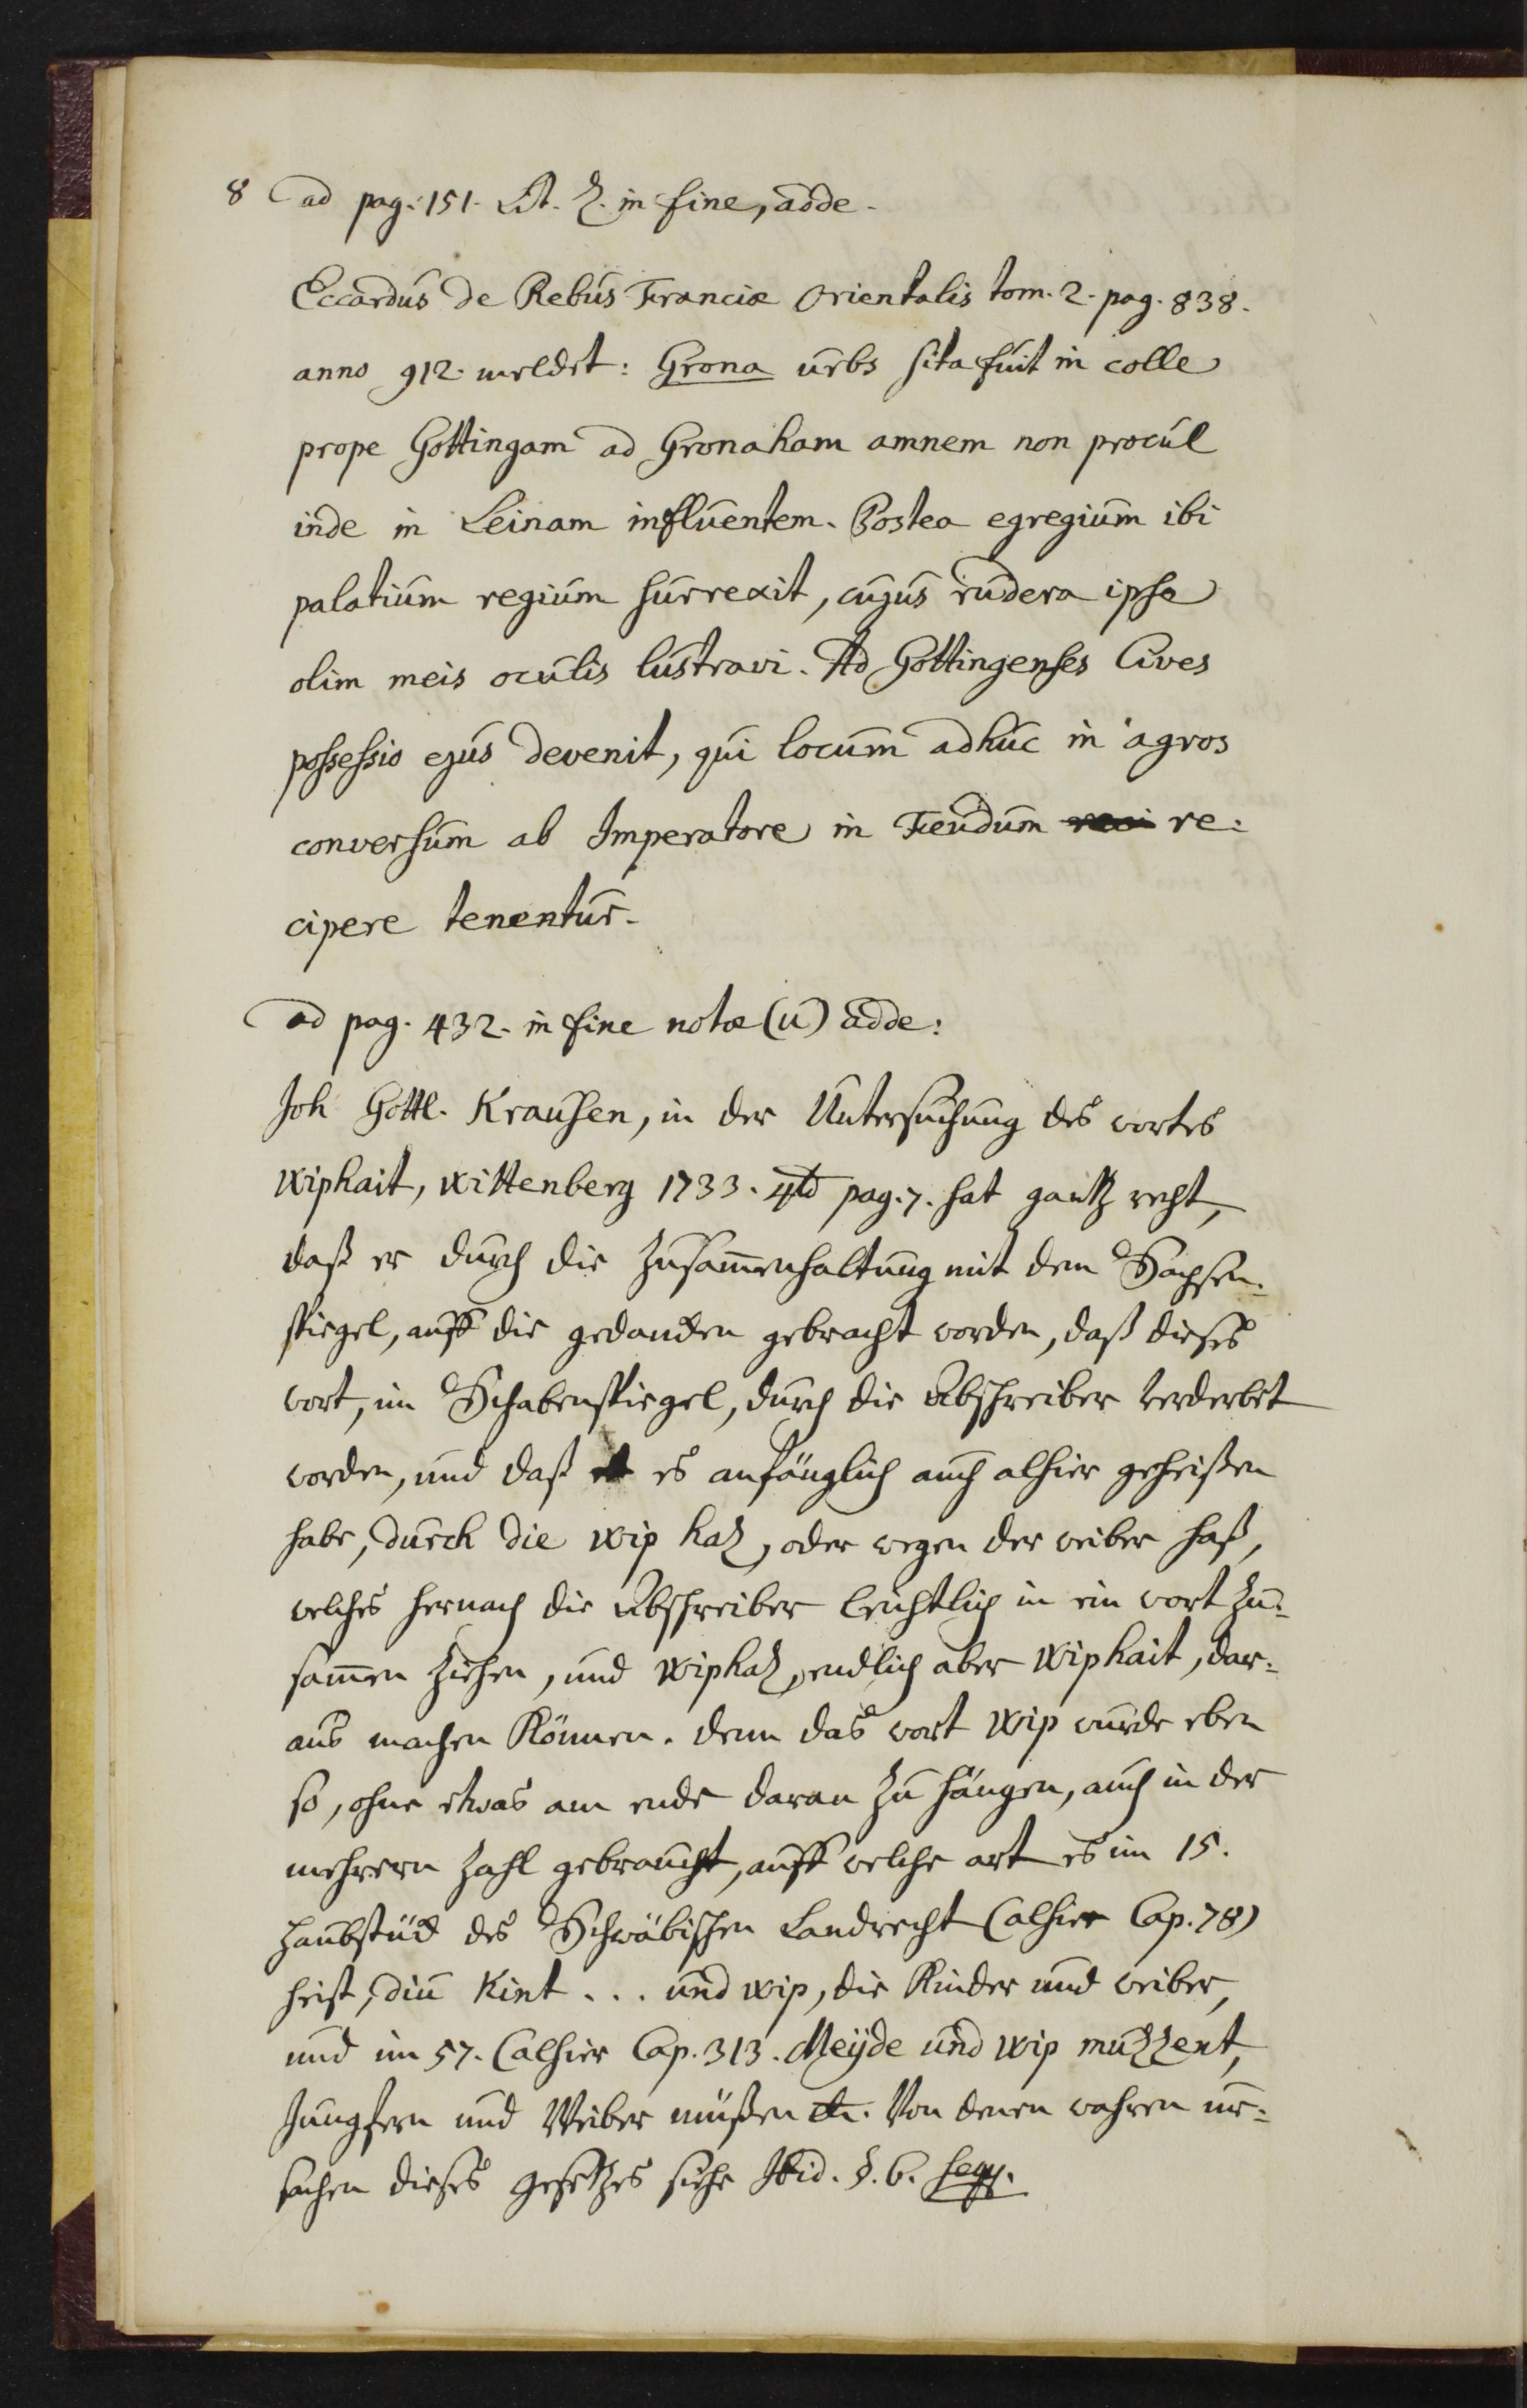 8 ad pag. 151. Lit. z. in fine, adde.
Eccardus de Rebus Franciæ Orientalis tom. 2. pag. 838.
anno 912. meldet: Grona urbs sita fuit in colle
prope Gottingam ad Gronaham amnem non procul
inde in Leinam influentem. Postea egregium ibi
palatium regium surrexit, cujus rudera ipse
olim meis oculis lustravi. Ad Gottingenses Cives
possessio ejus devenit, qui locum adhuc in agros
conversum ab Imperatore in Feudum re-
cipere tenentur.
ad pag. 432. in fine notæ (u) adde:
Joh Gottl. Krausen, in der Untersuchung des wortes
Wiphait, Wittenberg 1733. 4to pag. 7. hat gantz recht,
daß er durch die Zusam̄enhaltung mit dem Sachsen-
spiegel, auff die gedancken gebracht worden, daß dieses
wort, im Schabenspiegel, durch die Abschreiber verderbet
worden, und daß es anfänglich auch alhier geheißen
habe, durch die wip haz, oder wegen der weiber haß,
welches hernach die Abschreiber leichtlich in ein wort zu-
sam̄en ziehen, und Wiphaz, endlich aber Wiphait, dar-
aus machen können. denn das wort Wip wurde eben
so, ohne etwas am ende daran zu hängen, auch in der
mehrern Zahl gebraucht, auff welche art es im 15.
Haubstück des Schwäbischen Landrecht (alhier Cap. 78)
heist, diu Kint . . . und wip, die Kinder und weiber,
und im 57. (alhier Cap. 313. Meÿde und Wip muzzent,
Jungfern und Weiber müßen etc. Von denen wahren ur-
sachen dieses Gesetzes siehe Ibid. §. 6. seqq.